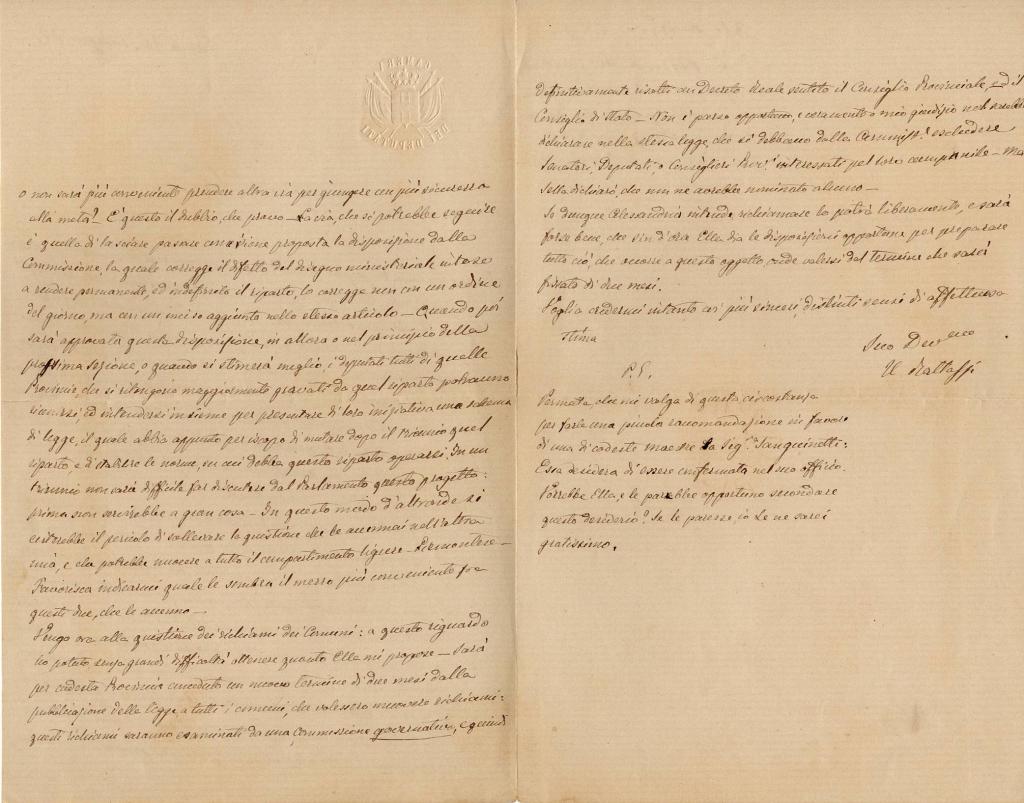 CAMERA
DEI DEPUTATI
o non sarà più conveniente prendere altra via per giungere con più sicurezza
alla meta? È questo il dubbio, che provo – La via, che si potrebbe seguire
è quella di lasciare passare come viene proposta la disposizione dalla
Commissione, la quale corregge il difetto del disegno ministeriale inteso
a rendere permanente, ed indefinito il riparto, lo corregge non con un ordine
del giorno, ma con un inciso aggiunto nello stesso articolo – Quando poi
sarà approvata questa disposizione, in allora o nel principio della
prossima sezione, o quando si stimerà meglio, i deputati tutti di quelle
Provincie, che si ritengono maggiormente gravati da quel riparto potranno
riunirsi, ed intendersi insieme per presentare di loro iniziativa uno schema
di legge, il quale abbia appunto per iscopo di mutare dopo il triennio quel
riparto, e di stabilire le norme, su cui debba questo riparto operarsi. In un
triennio non sarà difficile far discutere dal Parlamento questo progetto:
prima non servirebbe a gran cosa – In questo modo d'altronde si
eviterebbe il pericolo di sollevare la questione che le accennai nell'altra
mia, e che potrebbe nuocere a tutto il compartimento ligure – Piemontese –
Favorisca indicarmi quale le sembra il mezzo più conveniente fra
questi due, che le accenno –
Vengo ora alla quistione dei richiami dei Comuni: a questo riguardo
ho potuto senza grandi difficoltà ottenere quanto Ella mi propose – Sarà
per codesta Provincia conceduto un nuovo termine di due mesi dalla
pubblicazione della legge a tutti i comuni, che volessero muovere richiami:
questi richiami saranno esaminati da una Commissione governativa, e quindi
definitivamente risolti con Decreto Reale sentito il Consiglio Provinciale, ed il
Consiglio di Stato – Non è parso opportuno, e veramente a mio giudizio nol sarebbe
dichiarare nella stessa legge, che si debbano dalla Commiss.e escludere
Senatori, Deputati, o Consiglieri Prov.i interessati pel loro campanile – Ma
Sella dichiarò che non ne avrebbe nominato alcuno –
Se dunque Alessandria intende richiamare lo potrà liberamente, e sarà
forse bene, che sin d'ora Ella dia le disposizioni opportune per preparare
tutto ciò, che occorre a questo oggetto, onde valersi del termine che sarà
fissato di due mesi.
Voglia credermi intanto coi più sinceri, distinti sensi di affettuosa
stima
Suo Dev.mo
U Rattazzi
P.S.
Permetta, che mi valga di questa circostanza
per farle una piccola raccomandazione in favore
di una di codeste maestre la Sig.ra Sanguinetti:
Essa desidera di essere confermata nel suo officio.
Potrebbe Ella, e le parrebbe opportuno secondare
questo desiderio? Se le paresse, io Le ne sarei
gratissimo.